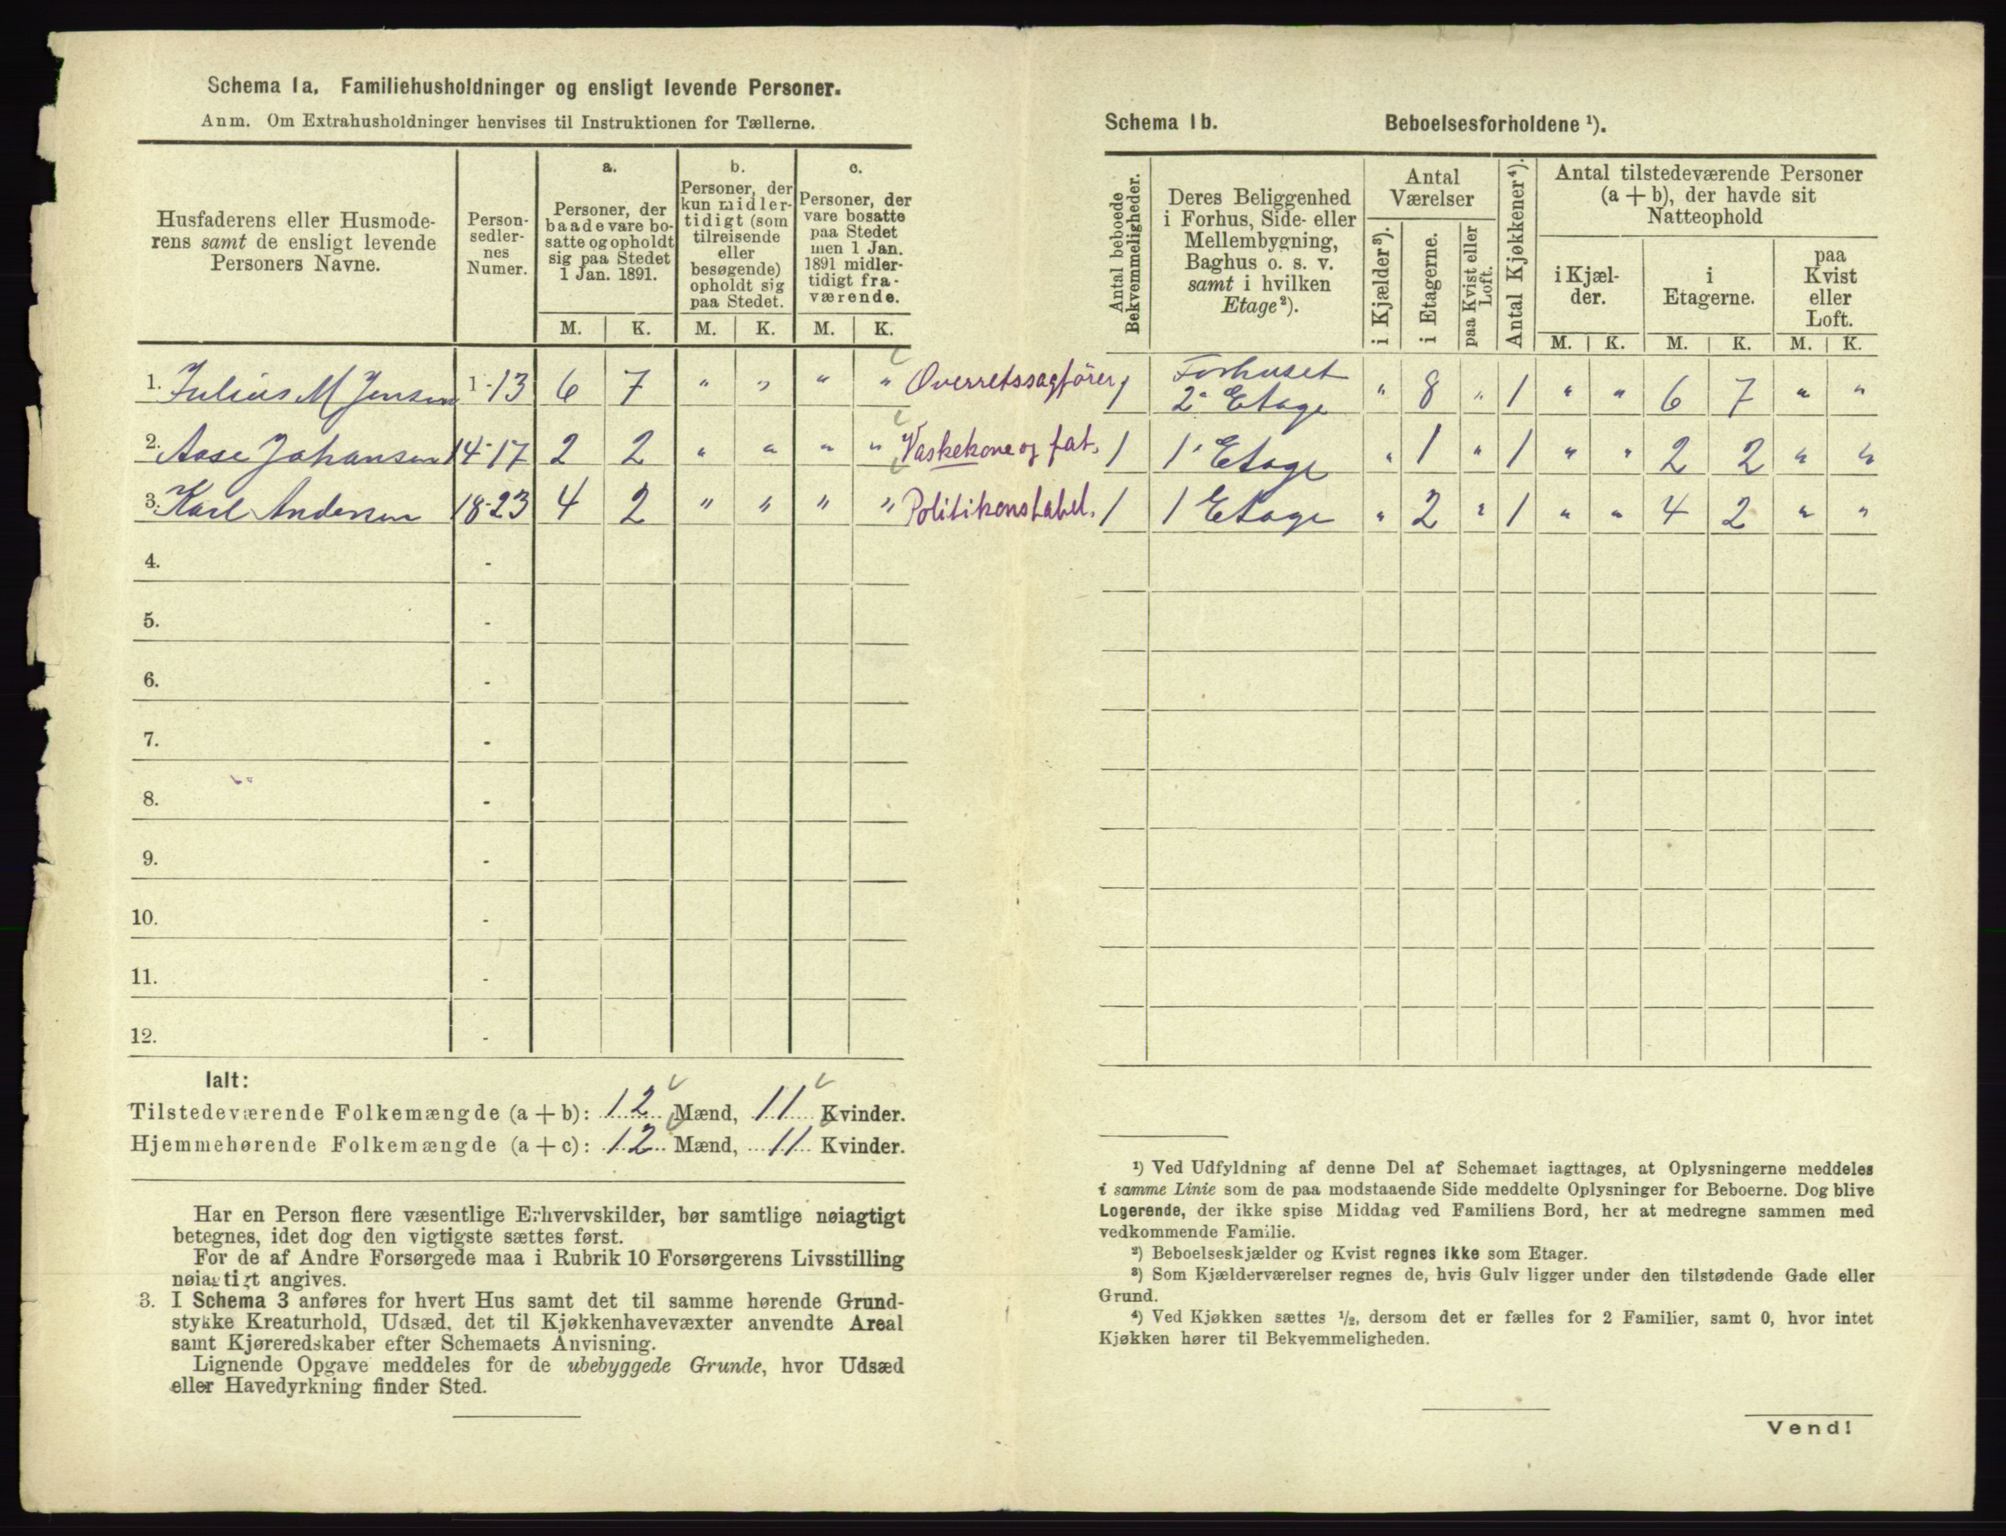 Schema 1a. Familiehusholdninger og ensligt levende Personer.
Anm. Om Extrahusholdninger henvises til Instruktionen for Tællerne.
Husfaderens eller Husmode-
rens samt de ensligt levende
Personers Navne.
Person-
sedler-
nes
Numer.
a.
Personer, der
baade vare bo-
satte og opholdt
sig paa Stedet
1 Jan. 1891.
b.
Personer, der
kun midler-
tidigt (som
tilreisende
eller
besøgende)
opholdt sig
paa Stedet.
c.
Personer, der
vare bosatte
paa Stedet
men 1 Jan.
1891 midler-
tidigt fra-
værende.
M. K. M. K. M. K.
1. Julius M Jensen 1-13 6 7 " " " " Overretssagfører
2. Aase Johansen 14-17 2 2 " " " " Vaskekone og fat.
3. Karl Andersen 18-23 4 2 " " " " Politikonstabel.
4. -
5. -
6. -
7. -
8. -
9. -
10. -
11. -
12. -
Ialt:
Tilstedeværende Folkemængde (a + b): 12 Mænd, 11 Kvinder.
Hjemmehørende Folkemængde (a + c): 12 Mænd, 11 Kvinder.
Har en Person flere væsentlige Erhvervskilder, bør samtlige nøiagtigt
betegnes, idet dog den vigtigste sættes først.
For de af Andre Forsørgede maa i Rubrik 10 Forsørgerens Livsstilling
nøiagtigt angives.
3. I Schema 3 anføres for hvert Hus samt det til samme hørende Grund-
stykke Kreaturhold, Udsæd, det til Kjøkkenhavevæxter anvendte Areal
samt Kjøreredskaber efter Schemaets Anvisning.
Lignende Opgave meddeles for de ubebyggede Grunde, hvor Udsæd
eller Havedyrkning finder Sted.
Schema 1b. Beboelsesforholdene ¹).
Antal beboede
Bekvemmeligheder.
Deres Beliggenhed
i Forhus, Side- eller
Mellembygning,
Baghus o. s. v.
samt i hvilken
Etage²).
Antal
Værelser
i Kjælder³).
i Etagerne.
paa Kvist eller
Loft.
Antal Kjøkkener⁴).
Antal tilstedeværende Personer
(a + b), der havde sit
Natteophold
i Kjæl-
der.
i
Etagerne.
paa
Kvist
eller
Loft.
M. K. M. K. M. K.
1 Forhuset
2. Etage " 8 " 1 " " 6 7 " "
1 1. Etage " 1 " 1 " " 2 2 " "
1 1 Etage " 2 " 1 " " 4 2 " "
¹) Ved Udfyldning af denne Del af Schemaet iagttages, at Oplysningerne meddeles
i samme Linie som de paa modstaaende Side meddelte Oplysninger for Beboerne. Dog blive
Logerende, der ikke spise Middag ved Familiens Bord, her at medregne sammen med
vedkommende Familie.
²) Beboelseskjælder og Kvist regnes ikke som Etager.
³) Som Kjælderværelser regnes de, hvis Gulv ligger under den tilstødende Gade eller
Grund.
⁴) Ved Kjøkken sættes ½, dersom det er fælles for 2 Familier, samt 0, hvor intet
Kjøkken hører til Bekvemmeligheden.
Vend!